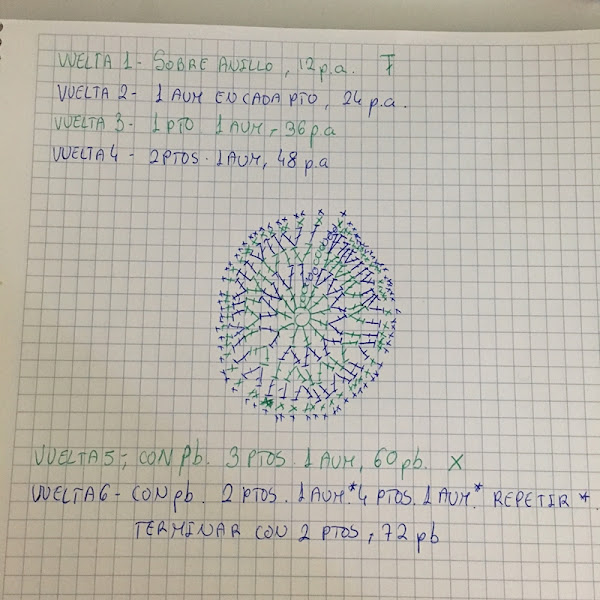 VUELTA 1- SOBRE ANILLO, 12 p.a. Ŧ
VUELTA 2- 1 AUM EN CADA PTO, 24 p.a.
VUELTA 3- 1 PTO 1 AUM, 36 p.a
VUELTA 4- 2 PTOS. 1 AUM, 48 p.a
VUELTA 5-; CON pb. 3 PTOS. 1 AUM, 60 pb. X
VUELTA 6- CON pb. 2 PTOS. 1 AUM.*4 PTOS. 1 AUM.* REPETIR *.
TERMINAR CON 2 PTOS, 72 pb